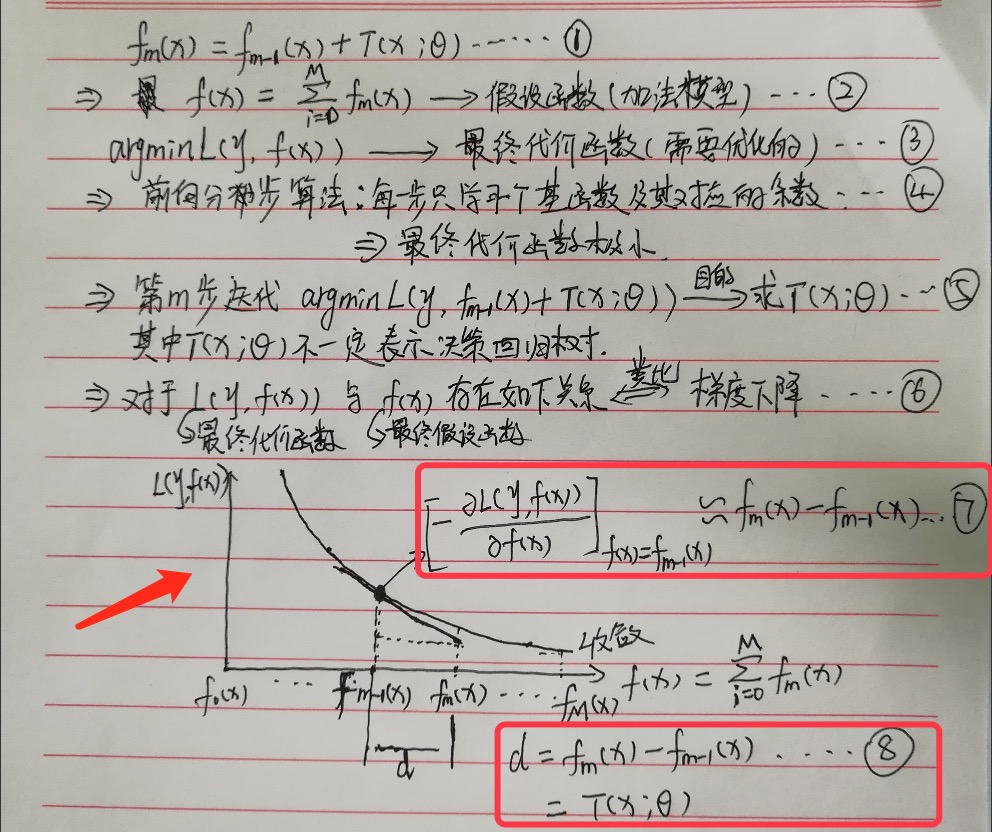 fm(x) = fm-1(x) + T(x;θ) ······ ①
⇒ f(x) = M∑i=0 fm(x) → 假设函数(加法模型) ··· ②
argmin L(y, f(x)) → 最终代价函数(需要优化的) ··· ③
⇒ 前向分步算法:每一步只学习一个基函数及其对应的系数 ··· ④
⇒ 最终代价函数极小.
⇒ 第m步迭代 argmin L(y, fm-1(x) + T(x;θ)) 目的→ 求T(x;θ) ·· ⑤
其中T(x;θ)不一定表示决策回归树.
⇒ 对于 L(y, f(x)) 与 f(x) 存在如下关系 类比 梯度下降 ···· ⑥
↳最终代价函数 ↳最终假设函数
L(y,f(x))
[-∂L(y,f(x))/∂f(x)]f(x)=fm-1(x) ≈ fm(x) - fm-1(x) ··· ⑦
收敛
f0(x) ··· fm-1(x) fm(x) ···· fM(x) f(x) = M∑i=0 fm(x)
d
d = fm(x) - fm-1(x) ····· ⑧
= T(x;θ)